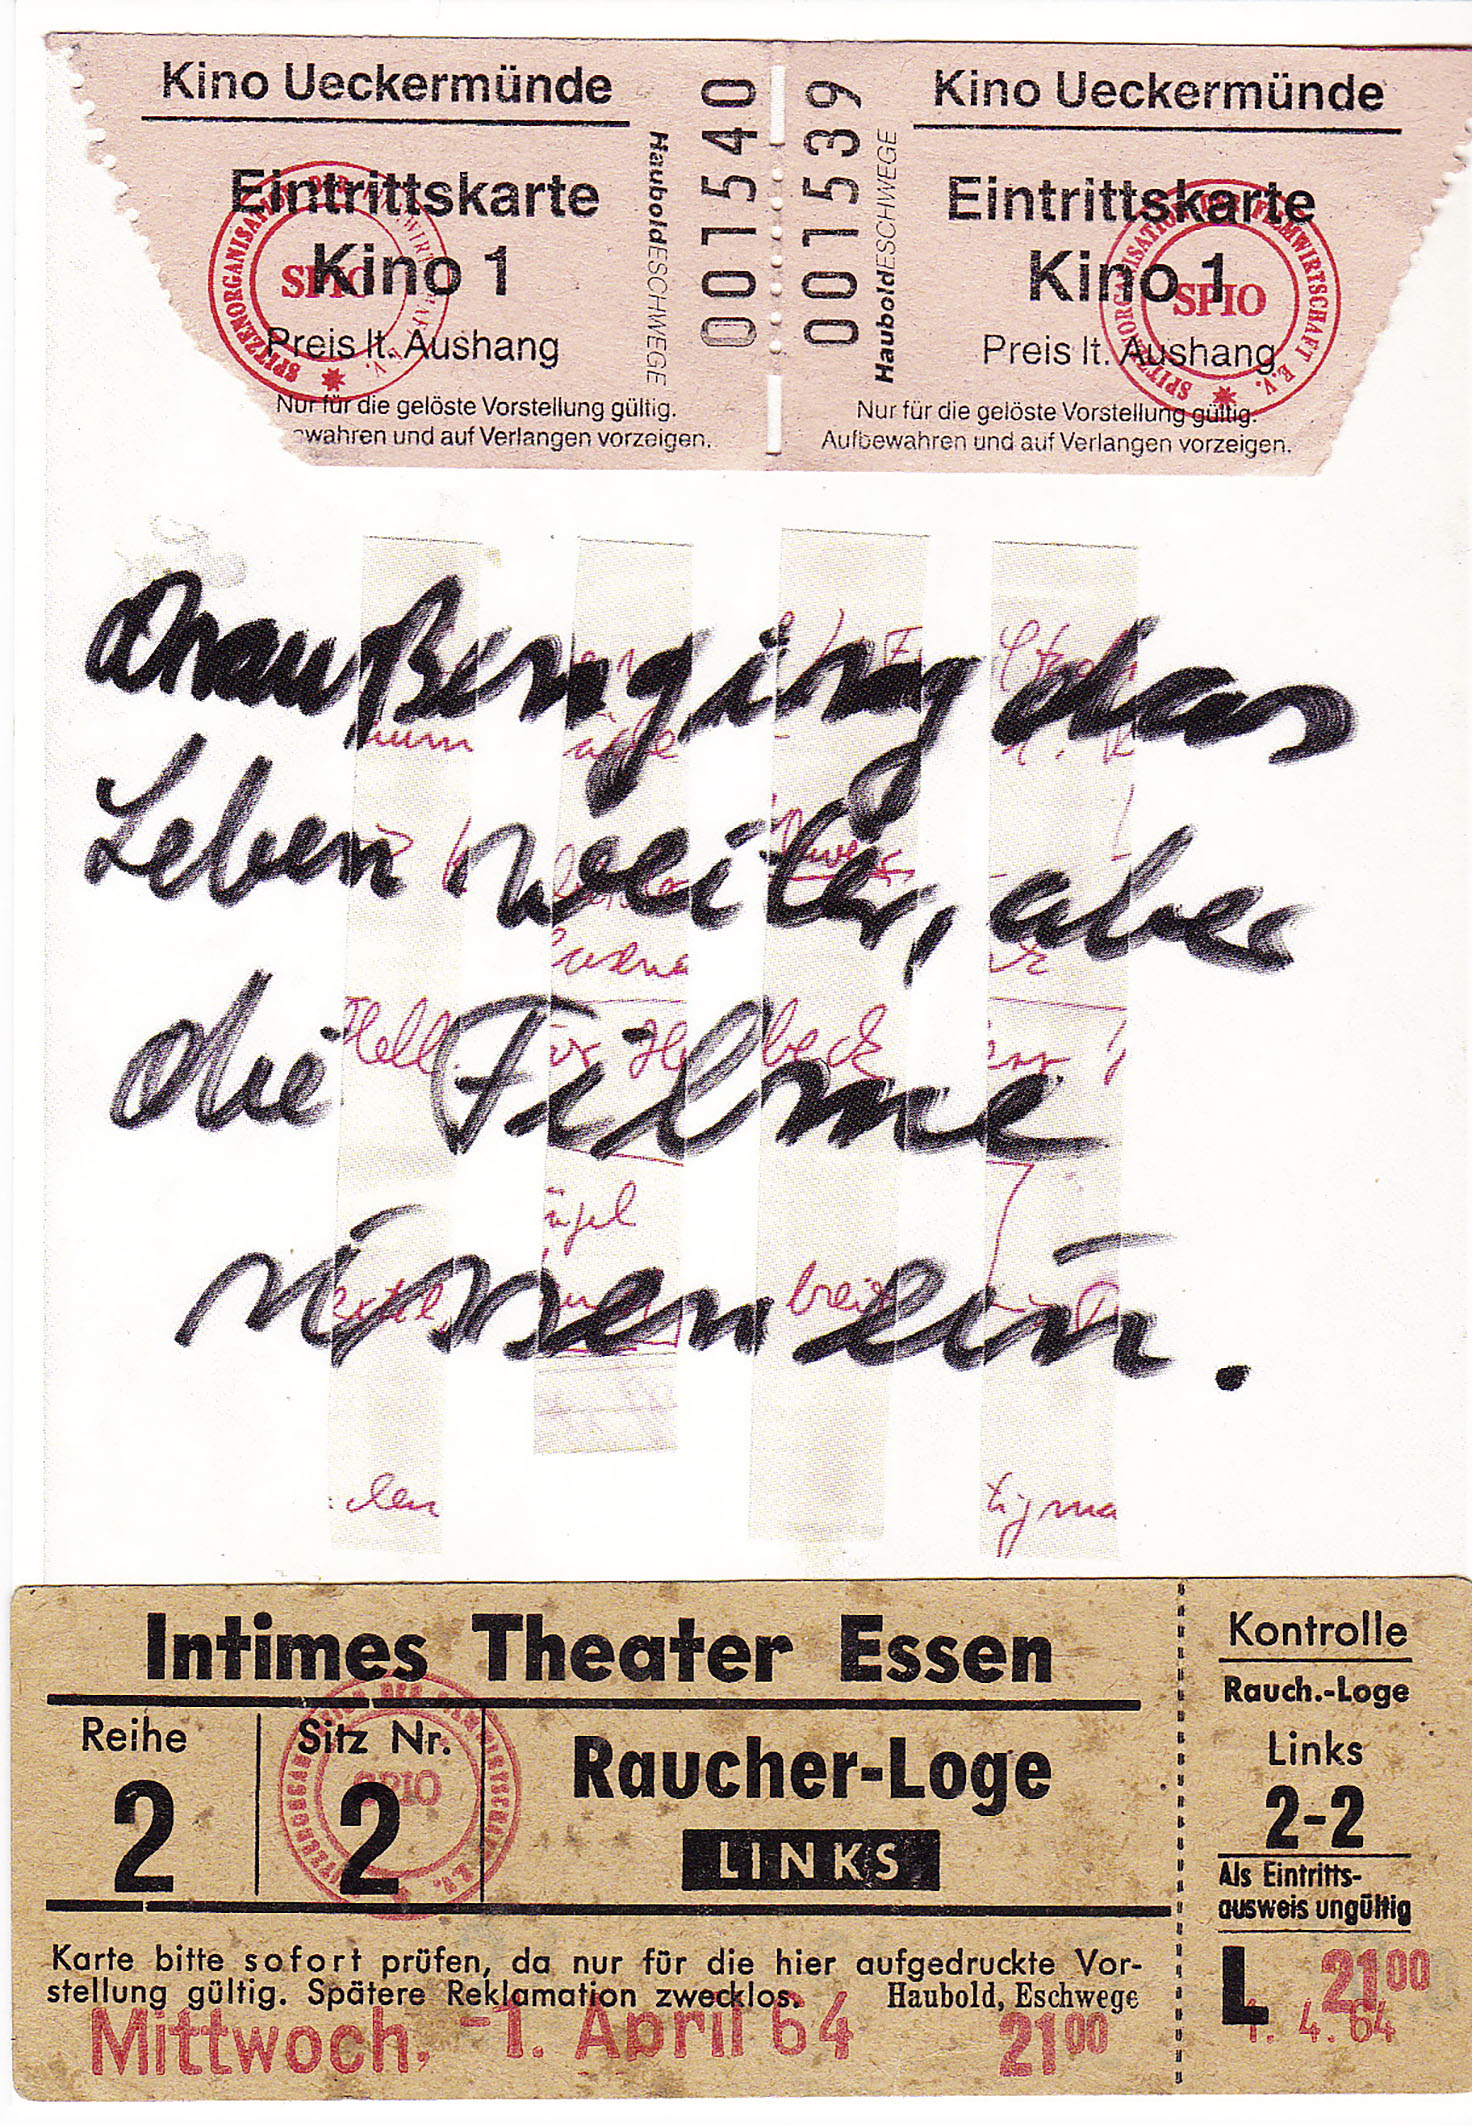 Kino Ueckermünde
Eintrittskarte
Kino 1
Preis lt. Aushang
Nur für die gelöste Vorstellung gültig.
wahren und auf Verlangen vorzeigen.
HauboldESCHWEGE
001540
SPITZENORGANISATION DER FILMWIRTSCHAFT E.V.
SPIO
001539
HauboldESCHWEGE
Kino Ueckermünde
Eintrittskarte
Kino 1
Preis lt. Aushang
Nur für die gelöste Vorstellung gültig.
Aufbewahren und auf Verlangen vorzeigen.
SPITZENORGANISATION DER FILMWIRTSCHAFT E.V.
SPIO
Draußen ging das
Leben weiter, aber
die Filme
rissen ein.
Intimes Theater Essen
Reihe
2
Sitz Nr.
2
SPIO
Raucher-Loge
LINKS
Karte bitte sofort prüfen, da nur für die hier aufgedruckte Vor-
stellung gültig. Spätere Reklamation zwecklos. Haubold, Eschwege
Mittwoch, -1. April 64 21⁰⁰
Kontrolle
Rauch.-Loge
Links
2-2
Als Eintritts-
ausweis ungültig
L 21⁰⁰
1. 4. 64